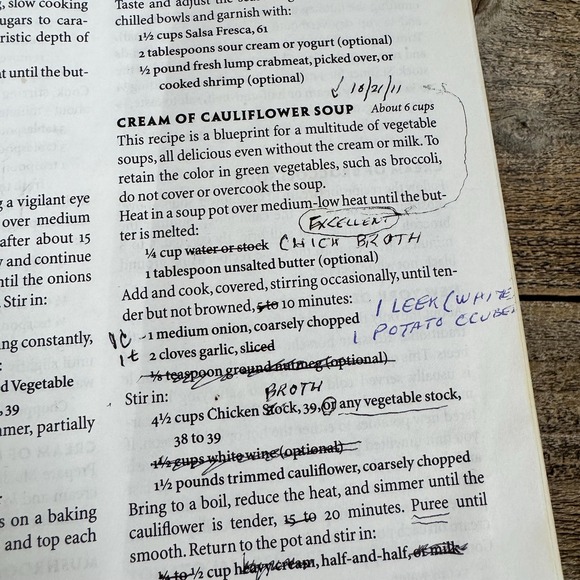 g, slow cooking
ugars to cara-
ristic depth of
at until the but-
g a vigilant eye
over medium
after about 15
y and continue
ntil the onions
Stir in:
ing constantly,
d Vegetable
, 39
mmer, partially
s on a baking
and top each
Taste and adjust the
chilled bowls and garnish with:
1½ cups Salsa Fresca, 61
2 tablespoons sour cream or yogurt (optional)
½ pound fresh lump crabmeat, picked over, or
cooked shrimp (optional)
10/21/11
CREAM OF CAULIFLOWER SOUP About 6 cups
This recipe is a blueprint for a multitude of vegetable
soups, all delicious even without the cream or milk. To
retain the color in green vegetables, such as broccoli,
do not cover or overcook the soup.
Heat in a soup pot over medium-low heat until the but-
ter is melted:
EXCELLENT
¼ cup water or stock CHICK BROTH
1 tablespoon unsalted butter (optional)
Add and cook, covered, stirring occasionally, until ten-
der but not browned, 5 to 10 minutes:
1 LEEK (WHITE
1 medium onion, coarsely chopped
1 POTATO CUBE
2 cloves garlic, sliced
⅛ teaspoon ground nutmeg (optional)
Stir in:
BROTH
4½ cups Chicken Stock, 39, or any vegetable stock,
38 to 39
1½ cups white wine (optional)
1½ pounds trimmed cauliflower, coarsely chopped
Bring to a boil, reduce the heat, and simmer until the
cauliflower is tender, 15 to 20 minutes. Puree until
smooth. Return to the pot and stir in:
¼ to ½ cup heavy cream, half-and-half, or milk